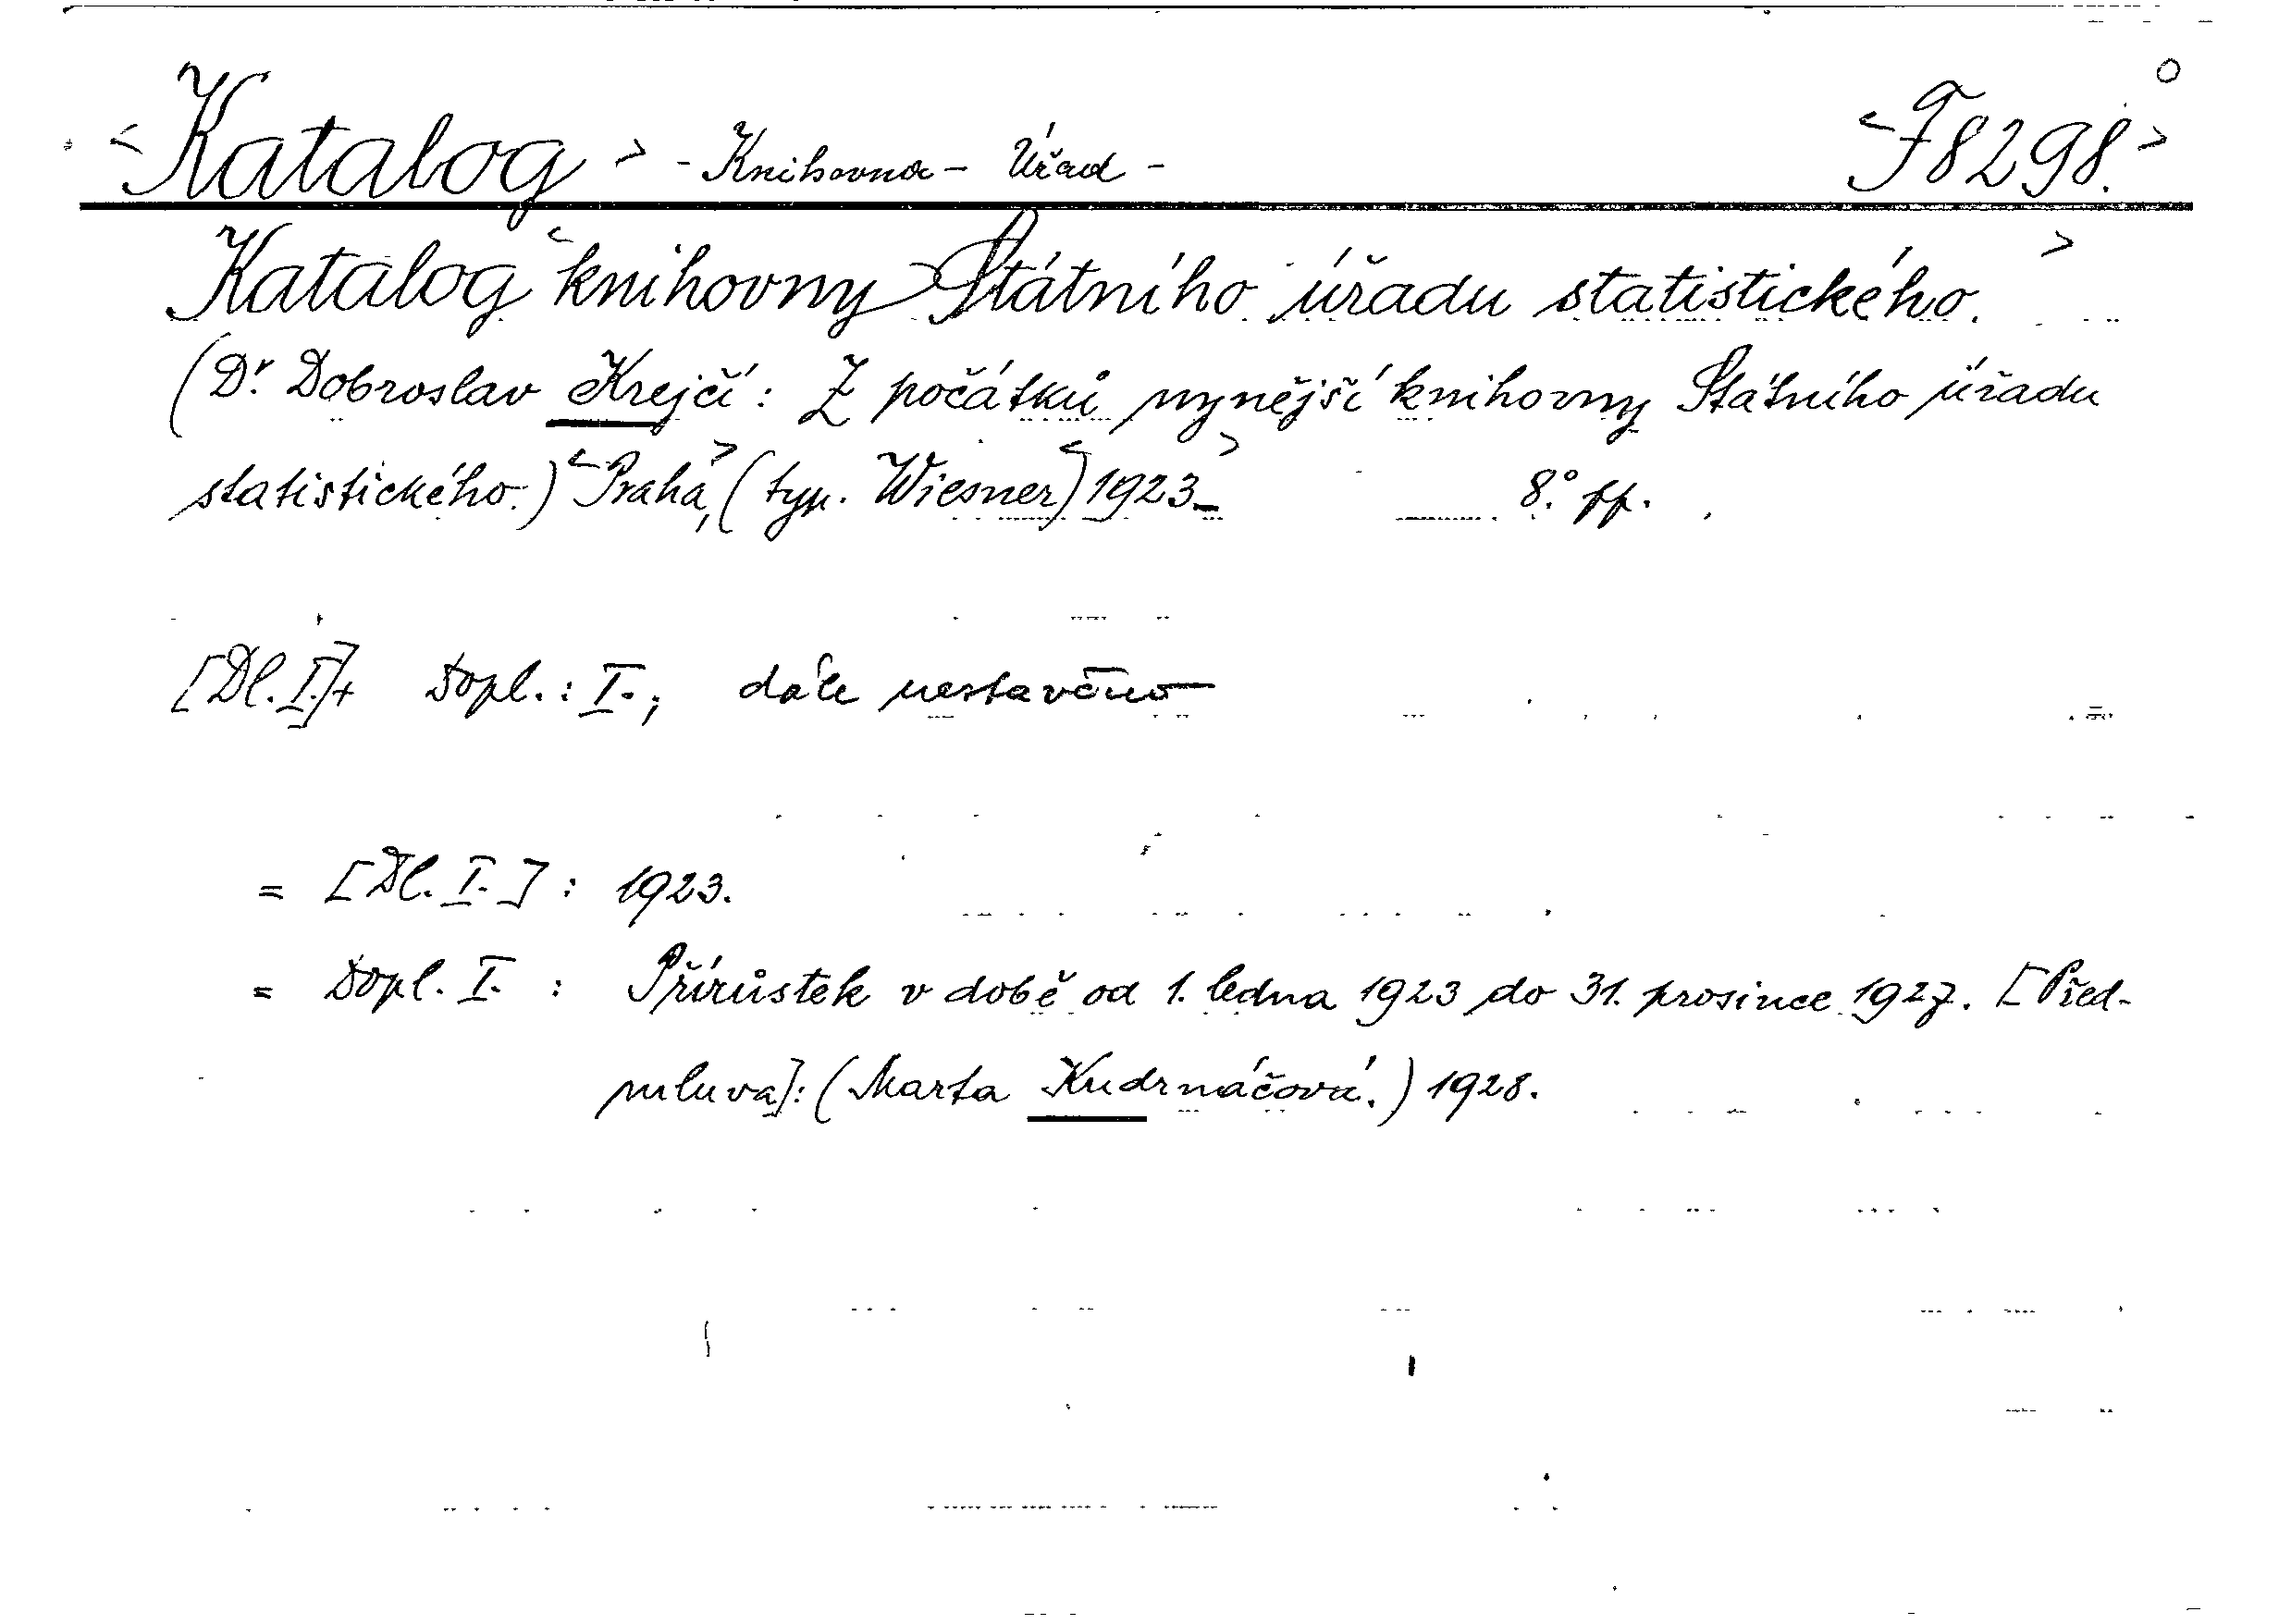 <Katalog> - Knihovna - Úřad - <F 8298.>
Katalog <knihovny Státního úřadu statistického.>
(Dr. Dobroslav Krejčí: Z počátků nynější knihovny Státního úřadu
statistického.) <Praha>, (typ. Wiesner) <1923-> 8.° pp.
[Dl. I.]+ Dopl.: I.; dále nestavěno
= [Dl. I.] : 1923.
= Dopl. I. : Přírůstek v době od 1. ledna 1923 do 31. prosince 1927. [Před-
mluva]: (Marta Kudrnáčová.) 1928.